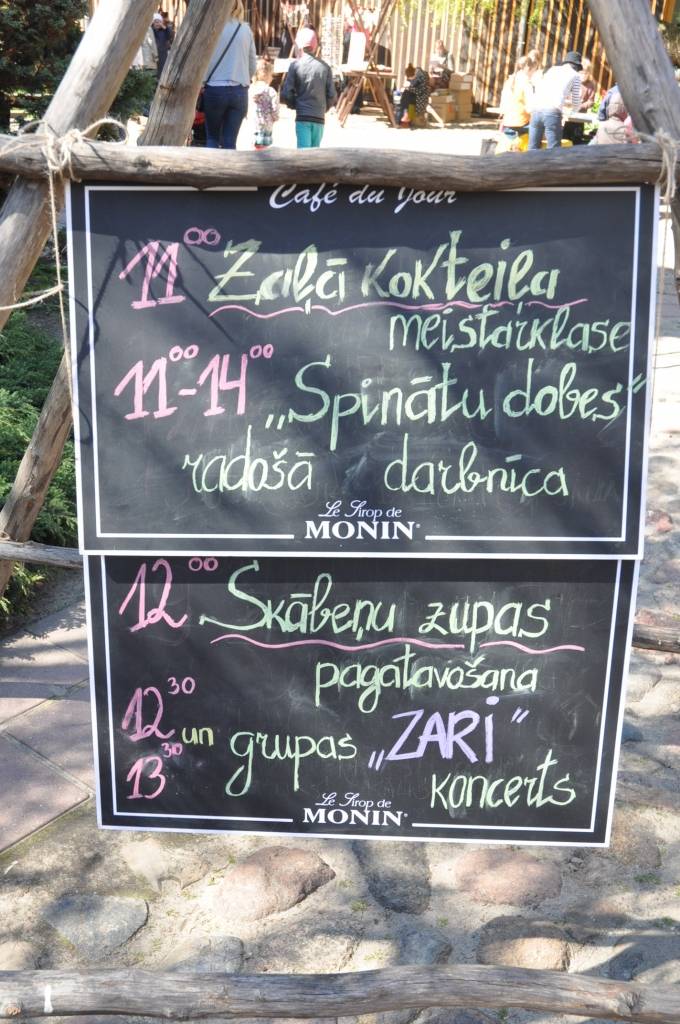 Café du Jour
11 00 Zaļā kokteiļa
meistarklase
11 00 - 14 00 „Spinātu dobes"
radošā darbnīca
Le Sirop de
MONIN®
12 00 Skābeņu zupas
pagatavošana
12 30 un grupas „ZARI"
13 30 koncerts
Le Sirop de
MONIN®